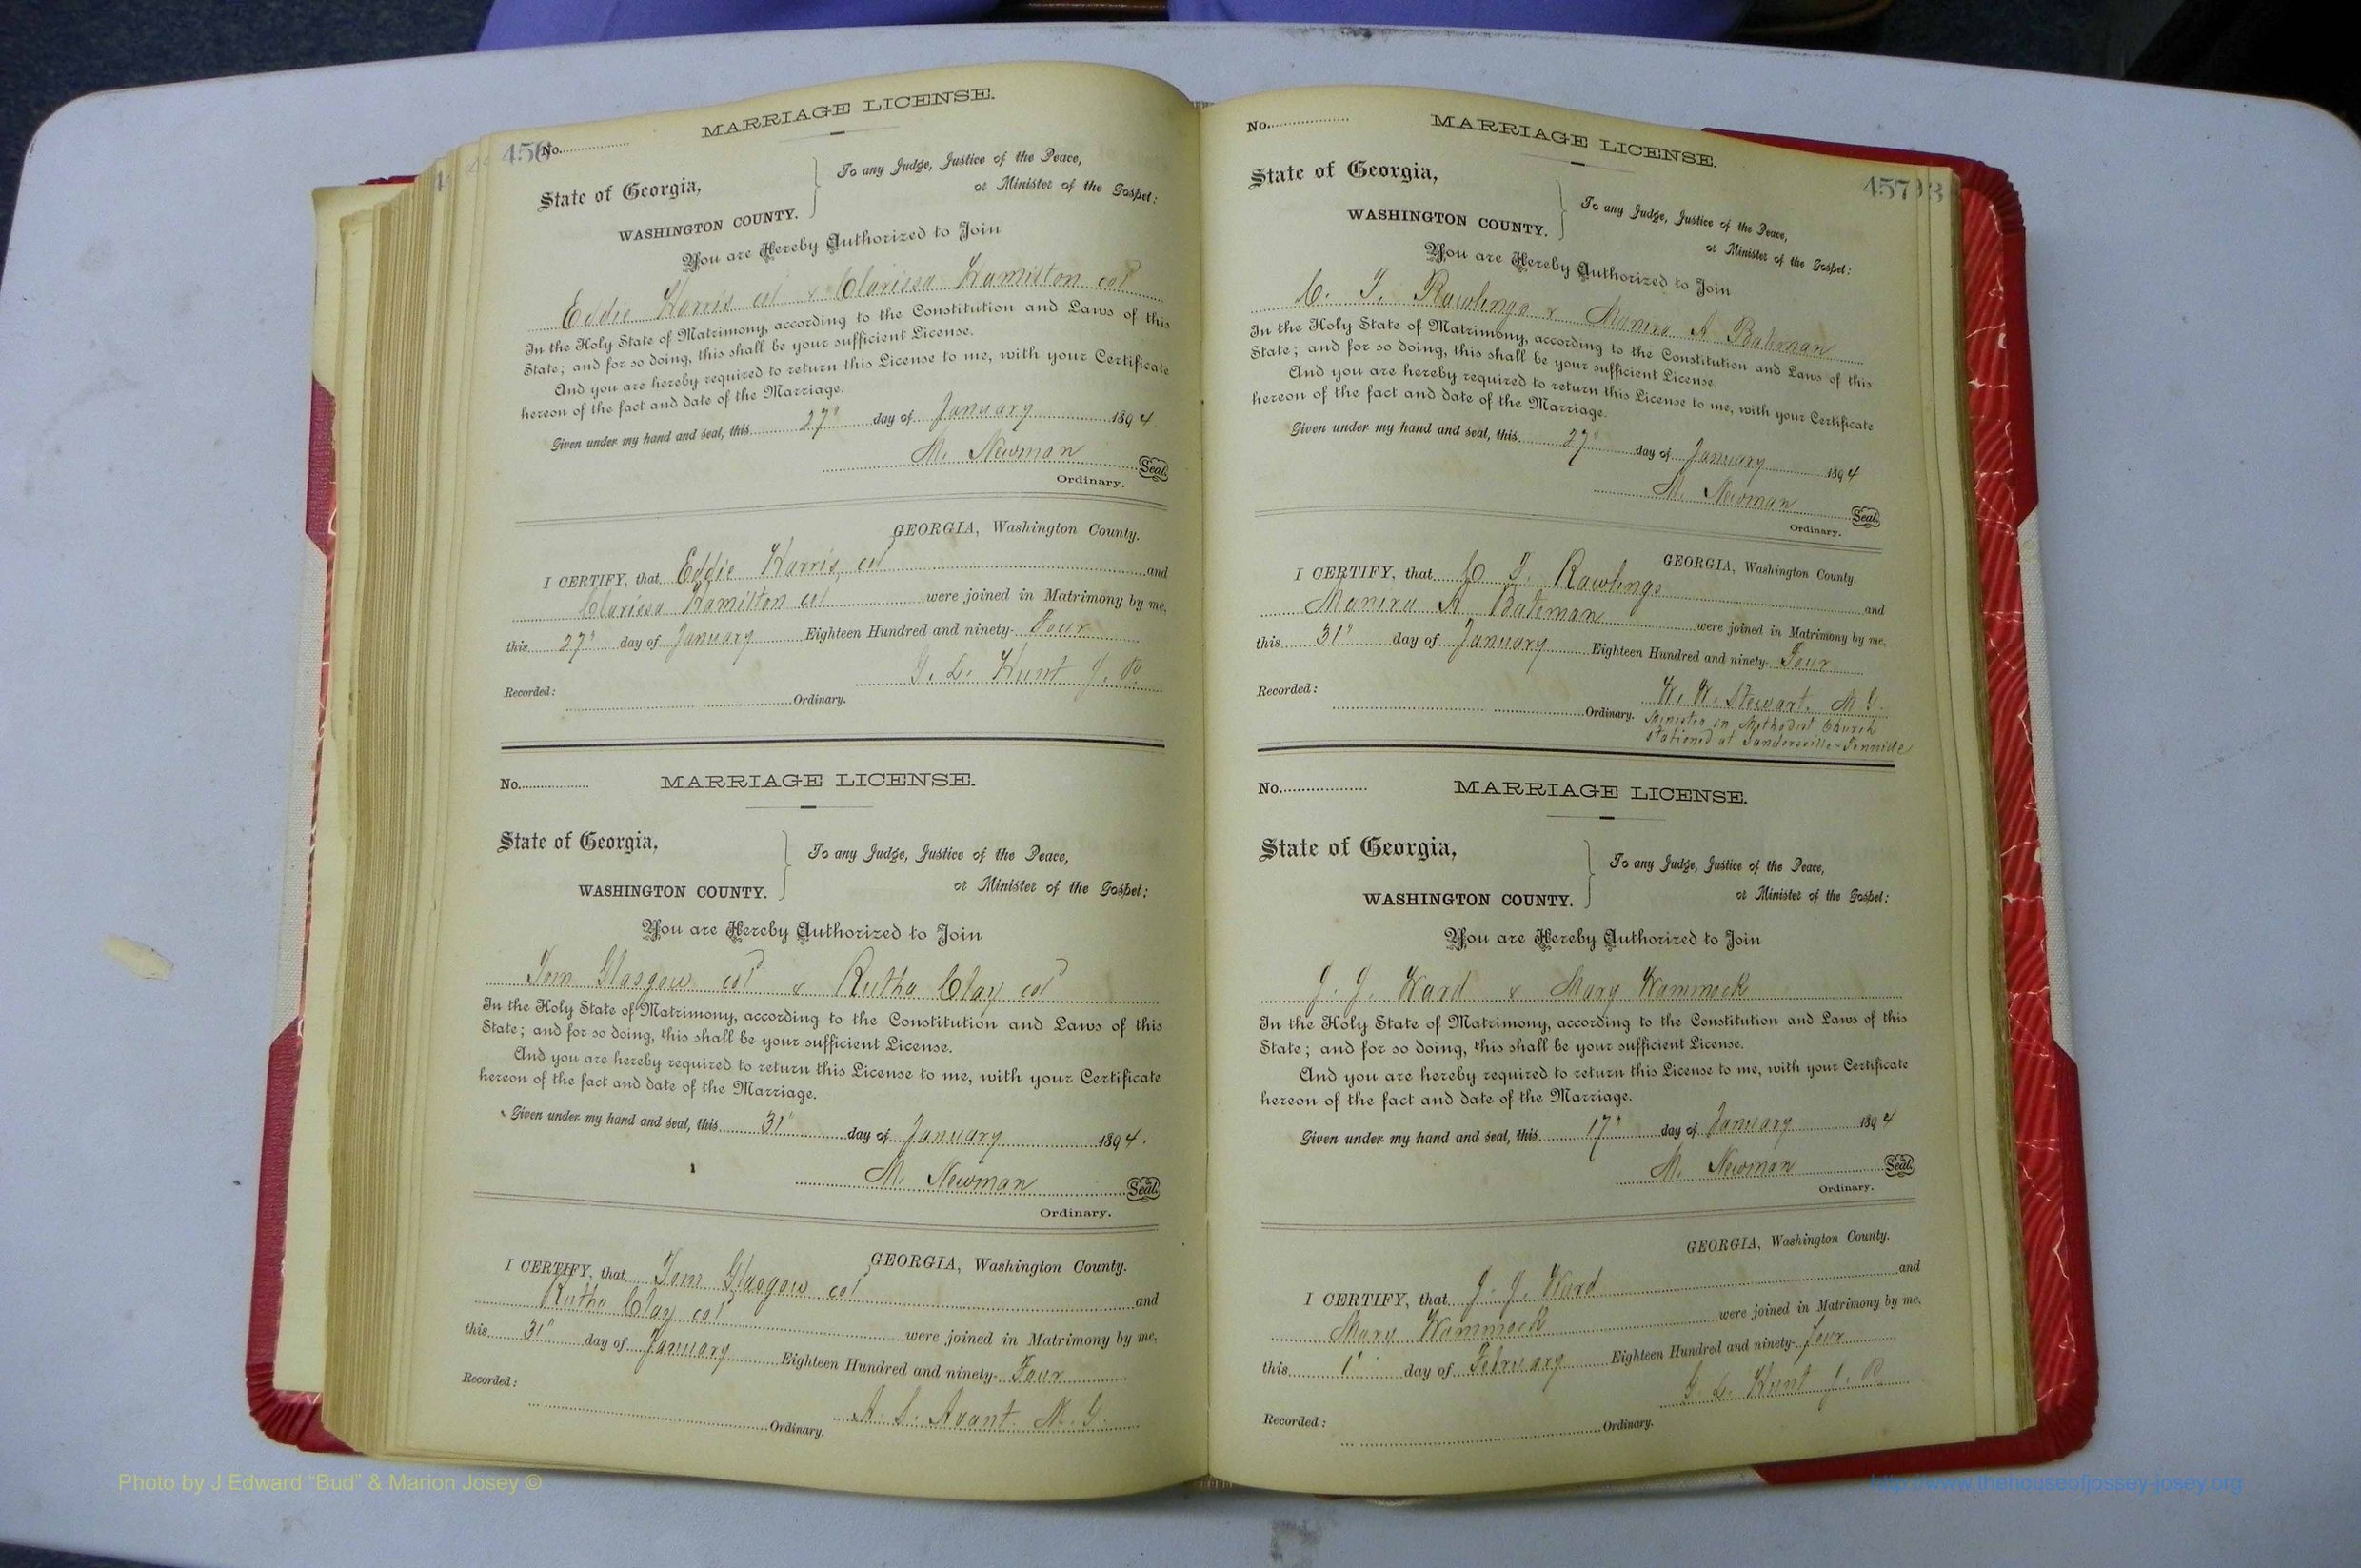 456
No.
MARRIAGE LICENSE.
State of Georgia,
WASHINGTON COUNTY.
To any Judge, Justice of the Peace,
or Minister of the Gospel:
You are Hereby Authorized to Join
Eddie Harris col & Clarissa Hamilton col
In the Holy State of Matrimony, according to the Constitution and Laws of this
State; and for so doing, this shall be your sufficient License.
And you are hereby required to return this License to me, with your Certificate
hereon of the fact and date of the Marriage.
Given under my hand and seal, this 27" day of January 1894
M. Newman Seal.
Ordinary.
GEORGIA, Washington County.
I CERTIFY, that Eddie Harris, col and
Clarissa Hamilton col were joined in Matrimony by me,
this 27" day of January Eighteen Hundred and ninety- Four
G. L. Hunt J. P.
Recorded: Ordinary.
No. MARRIAGE LICENSE.
State of Georgia,
WASHINGTON COUNTY.
To any Judge, Justice of the Peace,
or Minister of the Gospel:
You are Hereby Authorized to Join
Tom Glasgow col & Rutha Clay col
In the Holy State of Matrimony, according to the Constitution and Laws of this
State; and for so doing, this shall be your sufficient License.
And you are hereby required to return this License to me, with your Certificate
hereon of the fact and date of the Marriage.
Given under my hand and seal, this 31" day of January 1894.
M. Newman Seal.
Ordinary.
GEORGIA, Washington County.
I CERTIFY, that Tom Glasgow col and
Rutha Clay col were joined in Matrimony by me,
this 31" day of January Eighteen Hundred and ninety- Four
A. S. Avant. M. G.
Recorded: Ordinary.
No.
MARRIAGE LICENSE.
457
State of Georgia,
WASHINGTON COUNTY.
To any Judge, Justice of the Peace,
or Minister of the Gospel:
You are Hereby Authorized to Join
C. T. Rawlings & A Bateman
In the Holy State of Matrimony, according to the Constitution and Laws of this
State; and for so doing, this shall be your sufficient License.
And you are hereby required to return this License to me, with your Certificate
hereon of the fact and date of the Marriage.
Given under my hand and seal, this 27" day of January 1894
M. Newman Seal.
Ordinary.
GEORGIA, Washington County.
I CERTIFY, that C T. Rawlings and
A Bateman were joined in Matrimony by me,
this 31" day of January Eighteen Hundred and ninety- Four
W. W. Stewart. M G.
Recorded: Ordinary.
Minister in Methodist Church
stationed at Sandersville & Tennille
No. MARRIAGE LICENSE.
State of Georgia,
WASHINGTON COUNTY.
To any Judge, Justice of the Peace,
or Minister of the Gospel:
You are Hereby Authorized to Join
J. J. Ward & Mary Wommock
In the Holy State of Matrimony, according to the Constitution and Laws of this
State; and for so doing, this shall be your sufficient License.
And you are hereby required to return this License to me, with your Certificate
hereon of the fact and date of the Marriage.
Given under my hand and seal, this 17" day of January 1894
M. Newman Seal.
Ordinary.
GEORGIA, Washington County.
I CERTIFY, that J. J. Ward and
Mary Wommock were joined in Matrimony by me,
this 1" day of February Eighteen Hundred and ninety- four
G. L. Hunt J. P.
Recorded: Ordinary.
Photo by J Edward "Bud" & Marion Josey ©
http://www.thehouseofjossey-josey.org